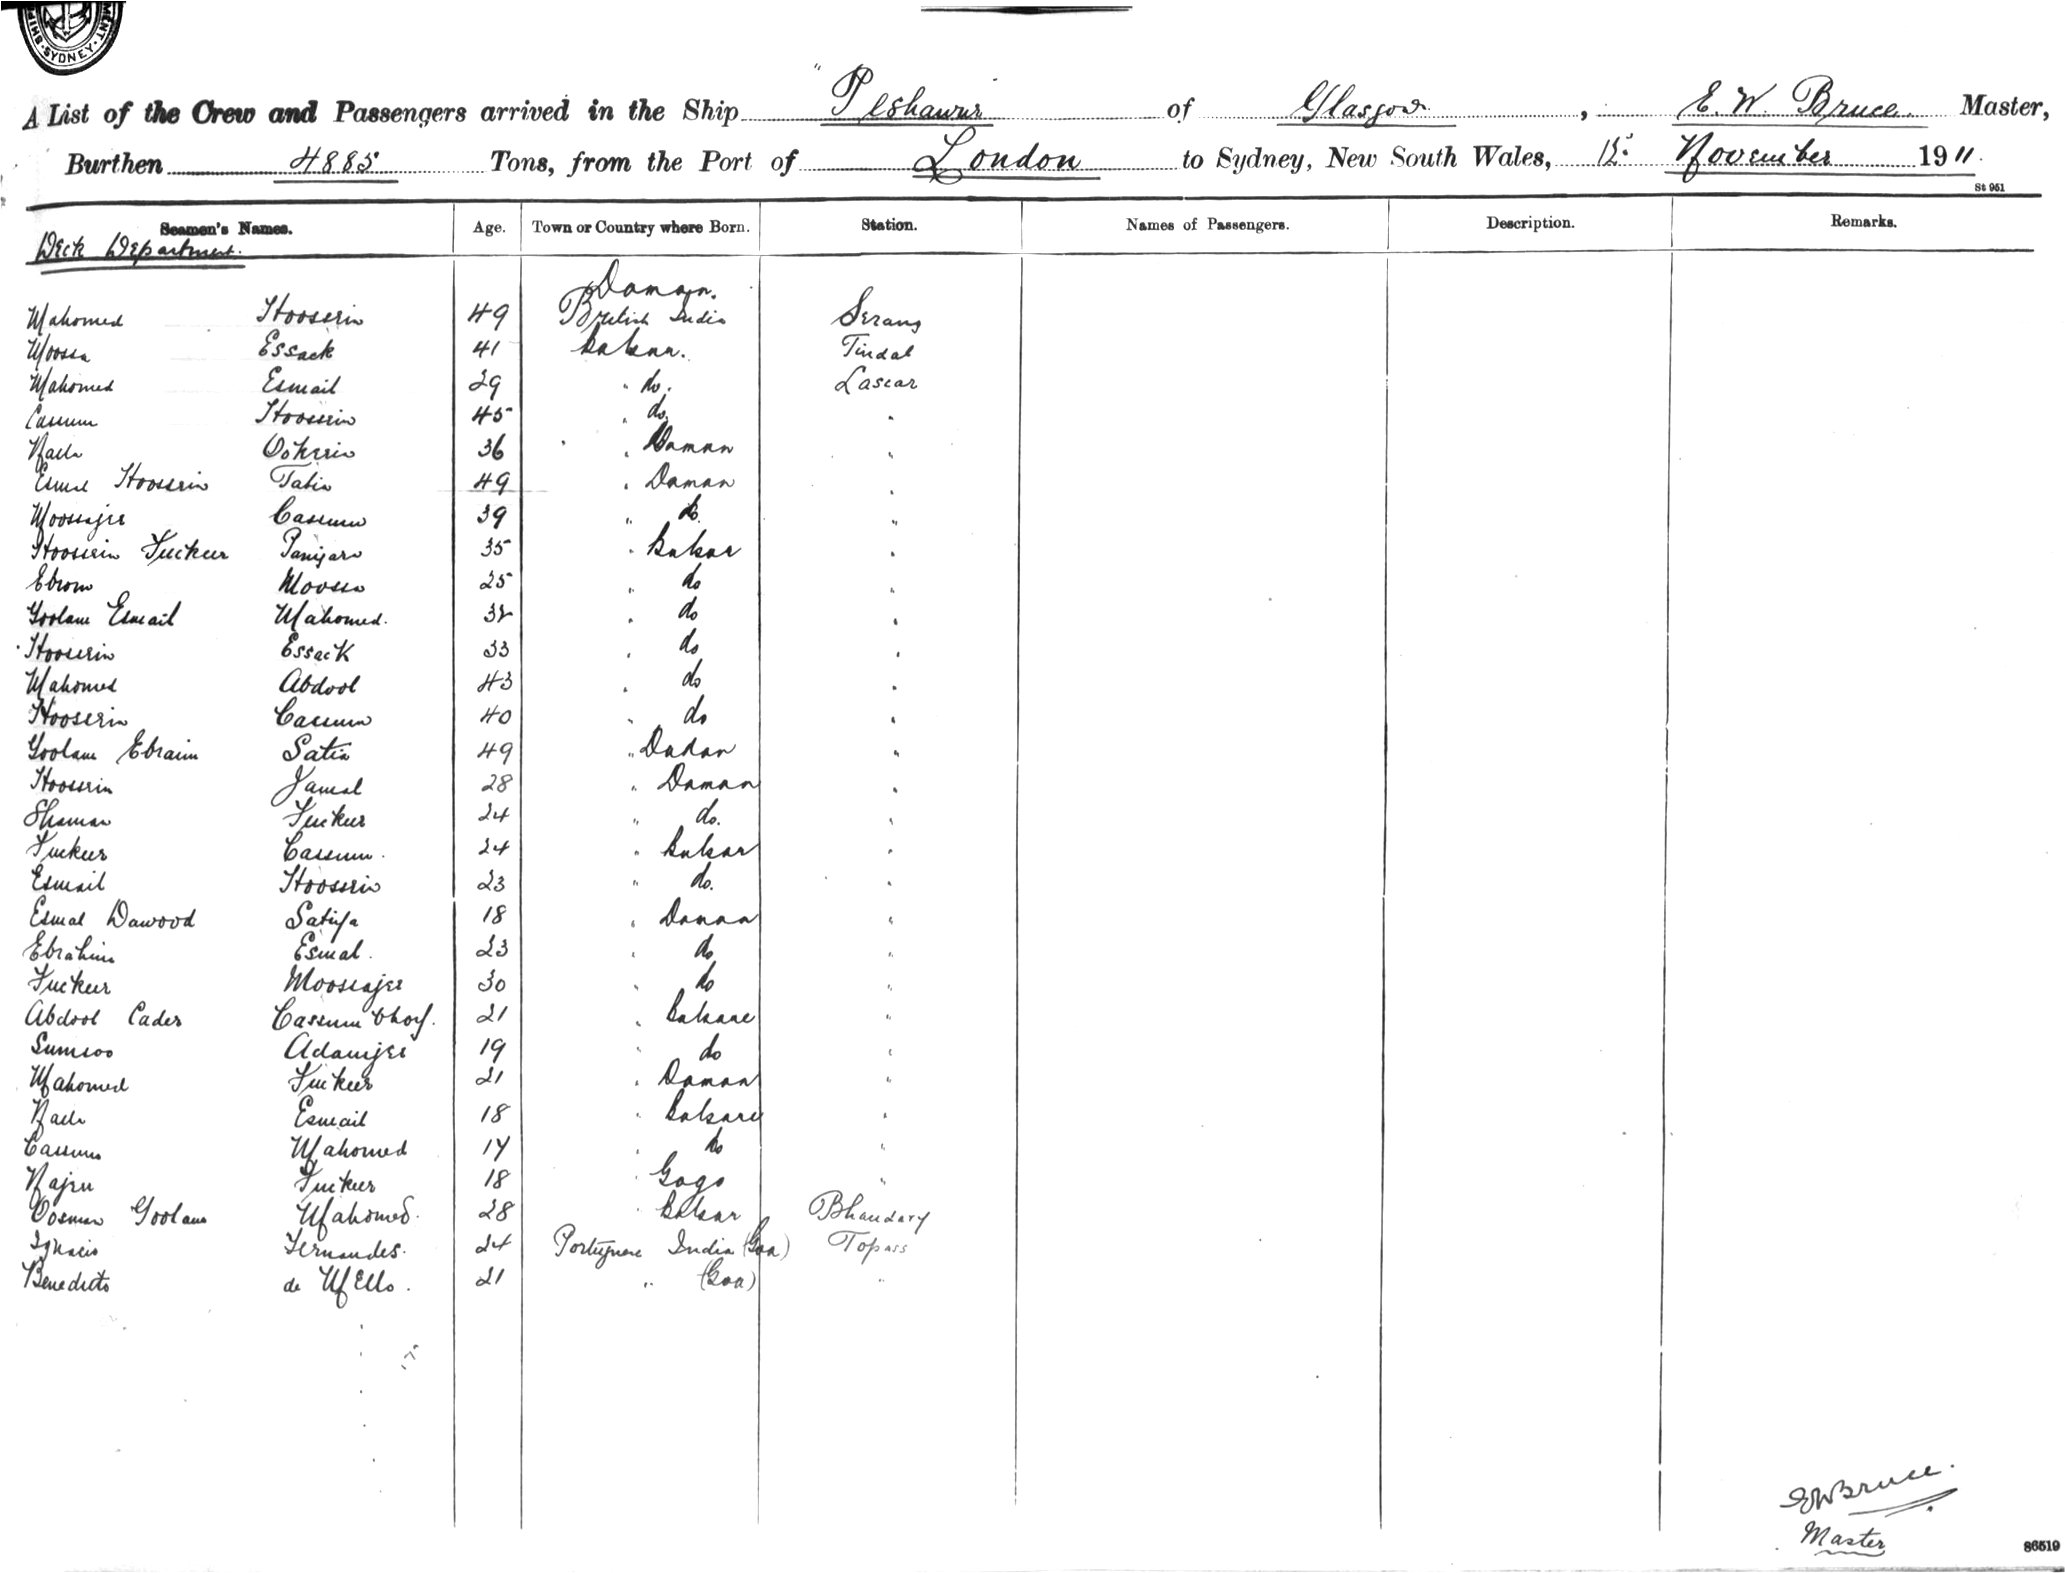 SHIP MENT SYDNEY
A List of the Crew and Passengers arrived in the Ship "Peshawur of Glasgow, E. W. Bruce. Master,
Burthen 4885 Tons, from the Port of London to Sydney, New South Wales, 12: November 1911.
St 951
Seamen's Names. Age. Town or Country where Born. Station. Names of Passengers. Description. Remarks.
Deck Department.
Daman.
Mahomed Hoosein 49 British India Serang
Moosa Essack 41 Bulsar. Tindal
Mahomed Esmail 29 " do. Lascar
Cassum Hoossein 45 " do "
36 " Daman "
Esmal Hoosein 49 " Daman "
Moosajee Cassum 39 " do. "
Hoosein Fuckeer 35 " Bulsar "
Ebrom Moosa 25 " do "
Goolam Esmail Mahomed. 32 " do "
Hoosein Essack 33 " do "
Mahomed Abdool 43 " do "
Hoosein Cassum 40 " do "
Goolam Ebraim Satia 49 " "
Hoosein Jamal 28 " Daman "
Shaman Fuckeer 24 " do. "
Fuckeer Cassum. 24 " Bulsar "
Esmail Hoosein 23 " do. "
Esmal Dawood 18 " Daman "
Ebrahim Esmal. 23 " do "
Fuckeer Moosajee 30 " do "
Abdool Cader Cassum 21 " Bulsare "
Sumsoo Adamjee 19 " do "
Mahomed Fuckeer 21 " Daman "
Esmail 18 " Bulsare "
Cassum Mahomed 17 " do "
Fuckeer 18 " Gogo "
Oosman Goolam Mahomed. 28 " Bulsar Bhandary
Ignacio Fernandes. 24 Portuguese India (Goa) Topass
Benedicto de Mello. 21 " (Goa) "
EWBruce.
Master
86519